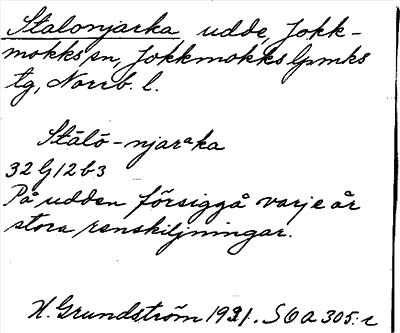 Stalonjarka, udde, Jokk-
mokks sn, Jokkmokks lpmks
tg, Norrb. l.
Stālō-njarᵃka
32 G 12 b 3
På udden försiggå varje år
stora renskiljningar.
H. Grundström 1931. SOA 305: